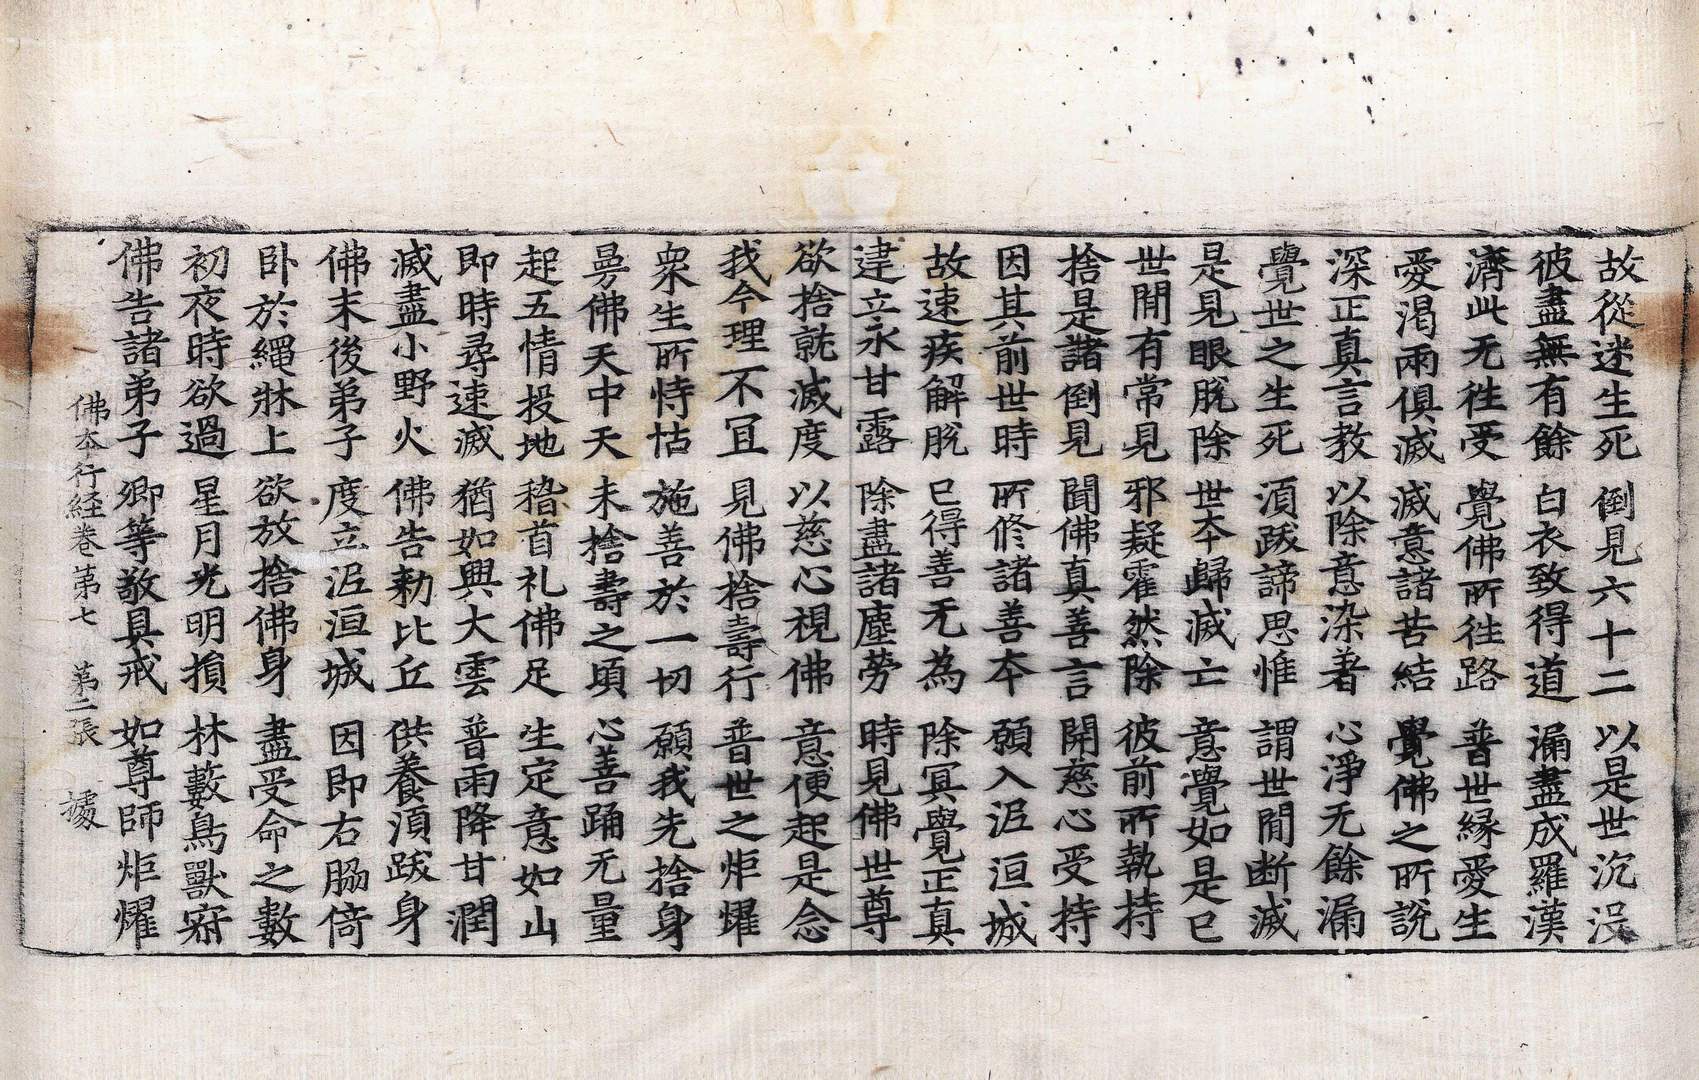 故從迷生死 倒見六十二 以是世沉没
彼盡無有餘 白衣致得道 漏盡成羅漢
濟此无往受 覺佛所往路 普世緣愛生
愛渴兩俱滅 滅意諸苦結 覺佛之所說
深正真言教 以除意染著 心淨无餘漏
覺世之生死 湏跋諦思惟 謂世閒断滅
是見眼脫除 世夲歸滅亡 意覺如是已
世閒有常見 邪疑霍然除 彼前所執持
捨是諸倒見 聞佛真善言 開慈心受持
因其前世時 所修諸善夲 願入泥洹城
故速疾解脫 已得善无為 除冥覺正真
建立永甘露 除盡諸塵勞 時見佛世尊
欲捨就滅度 以慈心視佛 意便起是念
我今理不冝 見佛捨壽行 普世之炬燿
衆生所恃怙 施善於一切 願我先捨身
曼佛天中天 未捨壽之頃 心善踊无量
起五情投地 稽首礼佛足 生定意如山
即時尋速滅 猶如興大雲 普雨降甘潤
滅盡小野火 佛告勑比丘 供養湏跋身
佛末後弟子 度立泥洹城 因即右脇倚
卧於繩牀上 欲放捨佛身 盡受命之數
初夜時欲過 星月光明損 林藪鳥獸寂
佛告諸弟子 卿等敬具戒 如尊師炬燿
佛夲行経卷苐七 苐二張 據